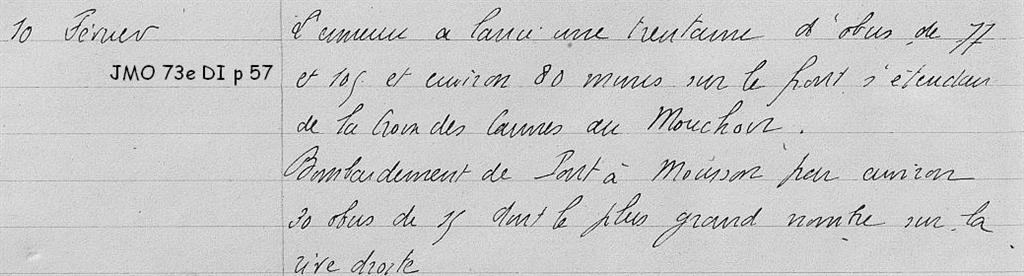 10 Février
JMO 73e DI p 57
L'ennemi a lancé une trentaine d'obus de 77
et 105 et environ 80 mines sur le front s'étendan
de la Croix des Carmes au Mouchoir.
Bombardement de Pont à Mousson par environ
30 obus de 15 dont le plus grand nombre sur la
rive droite